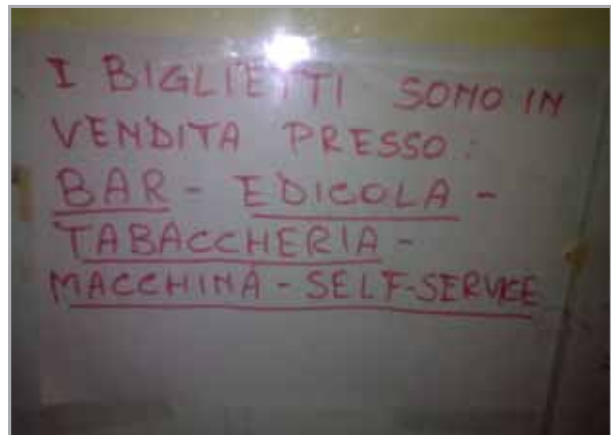 I BIGLIETTI SONO IN
VENDITA PRESSO:
BAR - EDICOLA -
TABACCHERIA -
MACCHINA - SELF-SERVICE